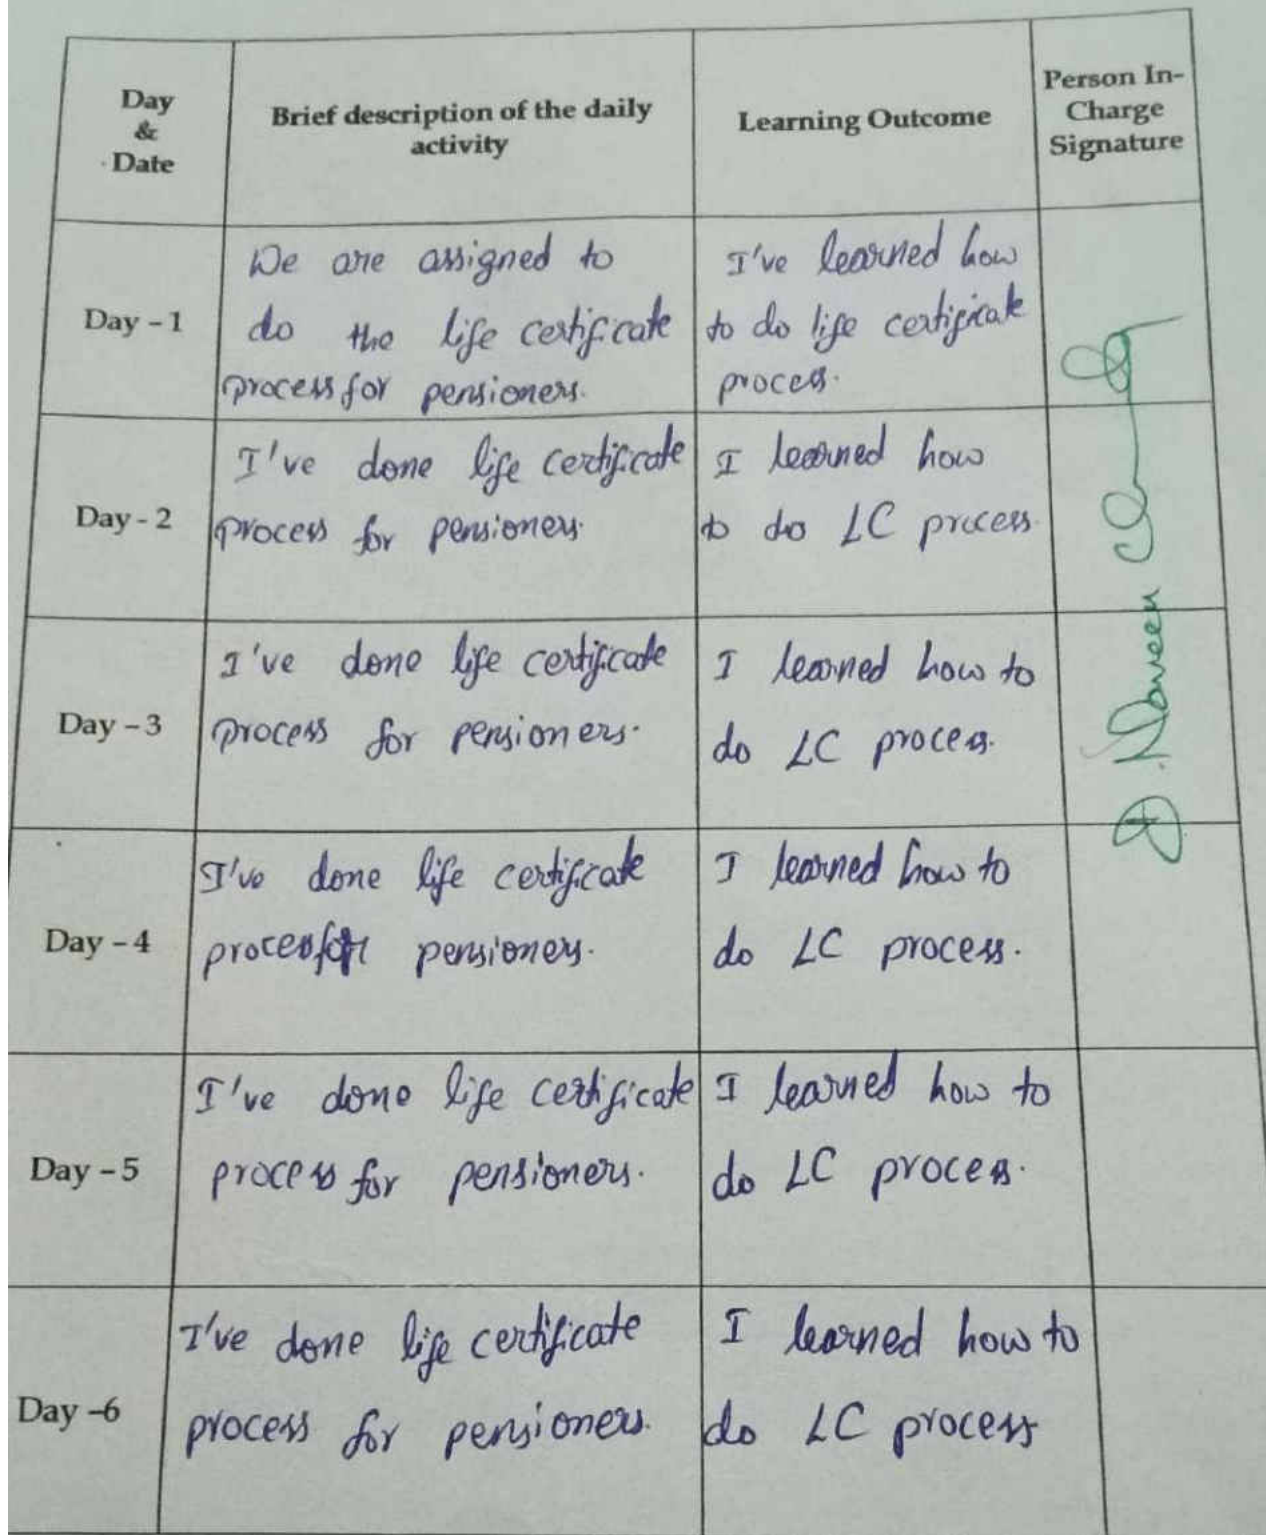 Day
&
Date
Brief description of the daily
activity
Learning Outcome
Person In-
Charge
Signature
Day - 1
We are assigned to
do the life certificate
process for pensioners.
I've learned how
to do life certificate
process.
Day - 2
I've done life certificate
process for pensioners.
I learned how
to do LC process.
Day - 3
I've done life certificate
process for pensioners.
I learned how to
do LC process.
Day - 4
I've done life certificate
process for pensioners.
I learned how to
do LC process.
Day - 5
I've done life certificate
process for pensioners.
I learned how to
do LC process.
Day -6
I've done life certificate
process for pensioners.
I learned how to
do LC process
D. Naveen